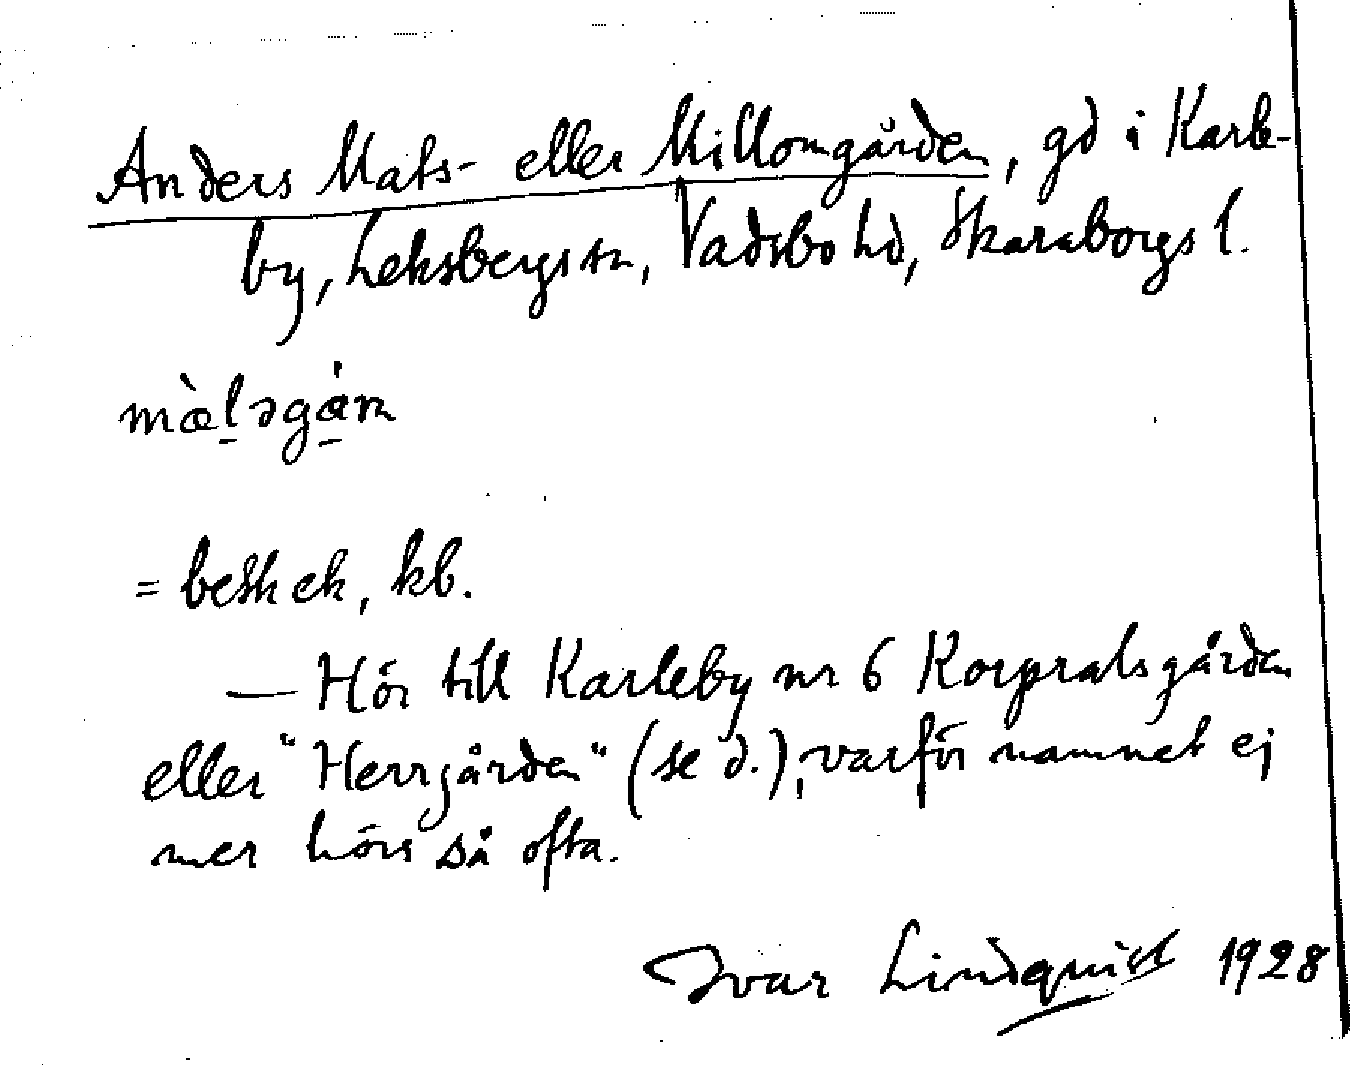 Anders Mats- eller Millomgården, gd i Karle-
by, Leksbergs sn, Vadsbo hd, Skaraborgs l.
mæ̀l̠əgæ̠̍n
= beskek, kb.
— Hör till Karleby nr 6 Korpralsgården
eller "Herrgården" (se d.), varför namnet ej
mer hörs så ofta.
Ivar Lindquist 1928